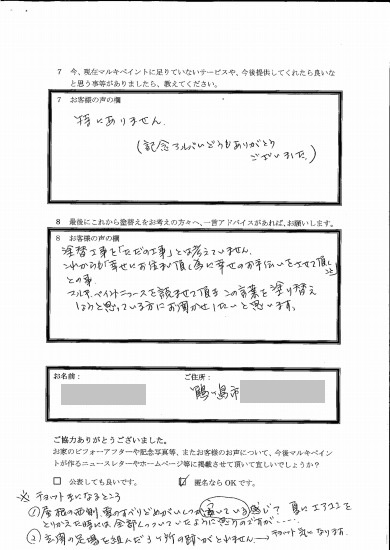 7 今、現在マルキペイントに足りていないサービスや、今後提供してくれたら良いな
と思う事等がありましたら、教えてください。
7 お客様の声の欄
特にありません。
(記念アルバムどうもありがとう
ございました。)
8 最後にこれから塗替えをお考えの方々へ、一言アドバイスがあれば、お願いします。
8 お客様の声の欄
塗替工事を「ただの工事」とは考えていません。
これからも「幸せにお住まい頂く為に幸せのお手伝いをさせて頂く
との事
マルキペイントニュースを読ませて頂き この言葉を塗り替え
しようと思っている方にお聞かせしたいと思います。
お名前:
ご住所:
鶴ヶ島市
ご協力ありがとうございました。
お家のビフォーアフターや記念写真等、またお客様のお声について、今後マルキペイント
が作るニュースレターやホームページ等に掲載させて頂いて宜しいでしょうか?
□ 公表しても良いです。 ☑ 匿名ならOKです。
※ チョット気になるところ
①屋根の西側 雪のすべりどめがいくつか 感じで 夏にエアコンを
とりかえた時は全部しっていたように思うのですが……
②玄関の足場を組んだ 所の跡がとれません→チョット気になります。